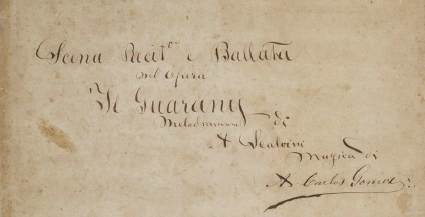 Scena Recit.vo e Ballata
nel Opera
Il Guarany
Melodramma di
A Scalvini
Musica di
A Carlos Gomes